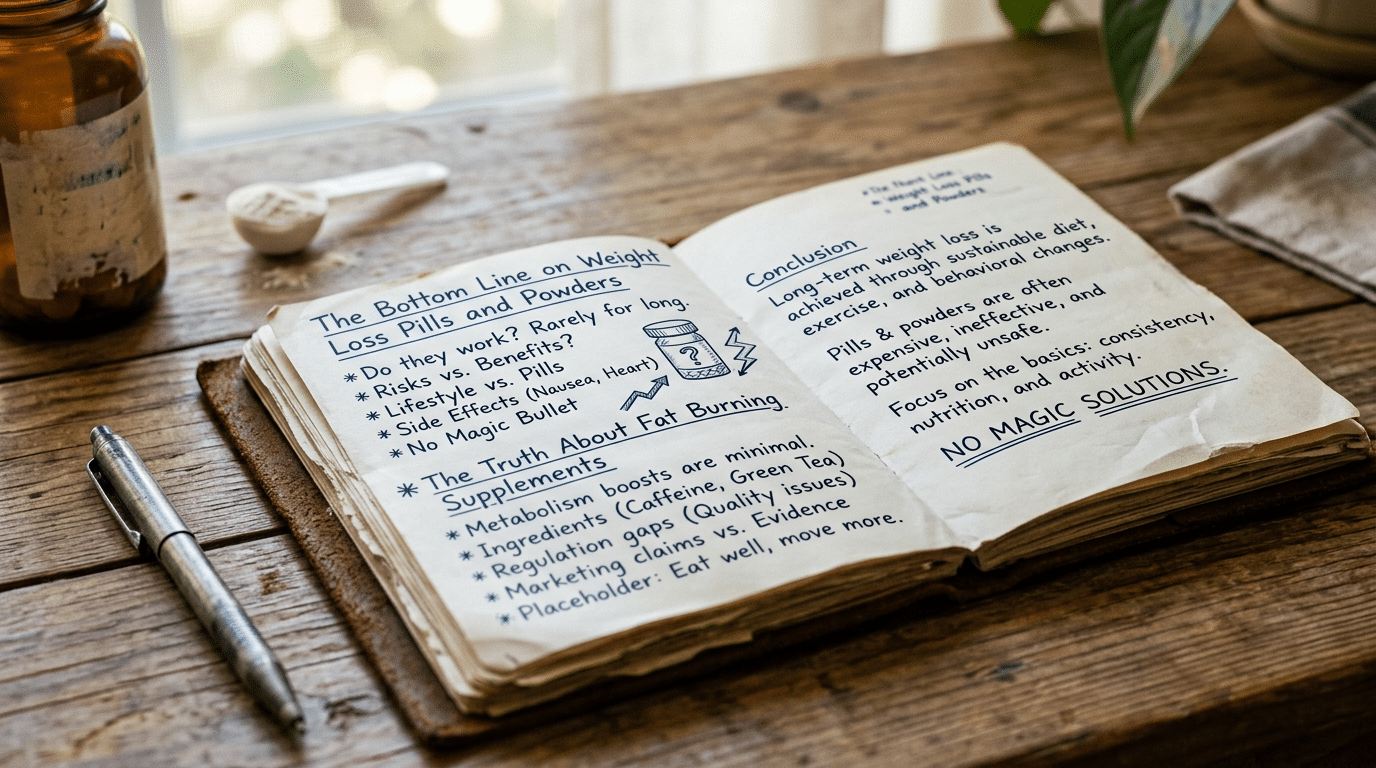 The Bottom Line on Weight
Loss Pills and Powders
* Do they work? Rarely for long.
* Risks vs. Benefits?
* Lifestyle vs. Pills
* Side Effects (Nausea, Heart)
* No Magic Bullet
?
* The Truth About Fat Burning
Supplements
* Metabolism boosts are minimal.
* Ingredients (Caffeine, Green Tea)
* Regulation gaps (Quality issues)
* Marketing claims vs. Evidence
* Placeholder: Eat well, move more.
Weight Loss Pills
and Powders
Conclusion
Long-term weight loss is
achieved through sustainable diet,
exercise, and behavioral changes.
Pills & powders are often
expensive, ineffective, and
potentially unsafe.
Focus on the basics: consistency,
nutrition, and activity.
NO MAGIC SOLUTIONS.